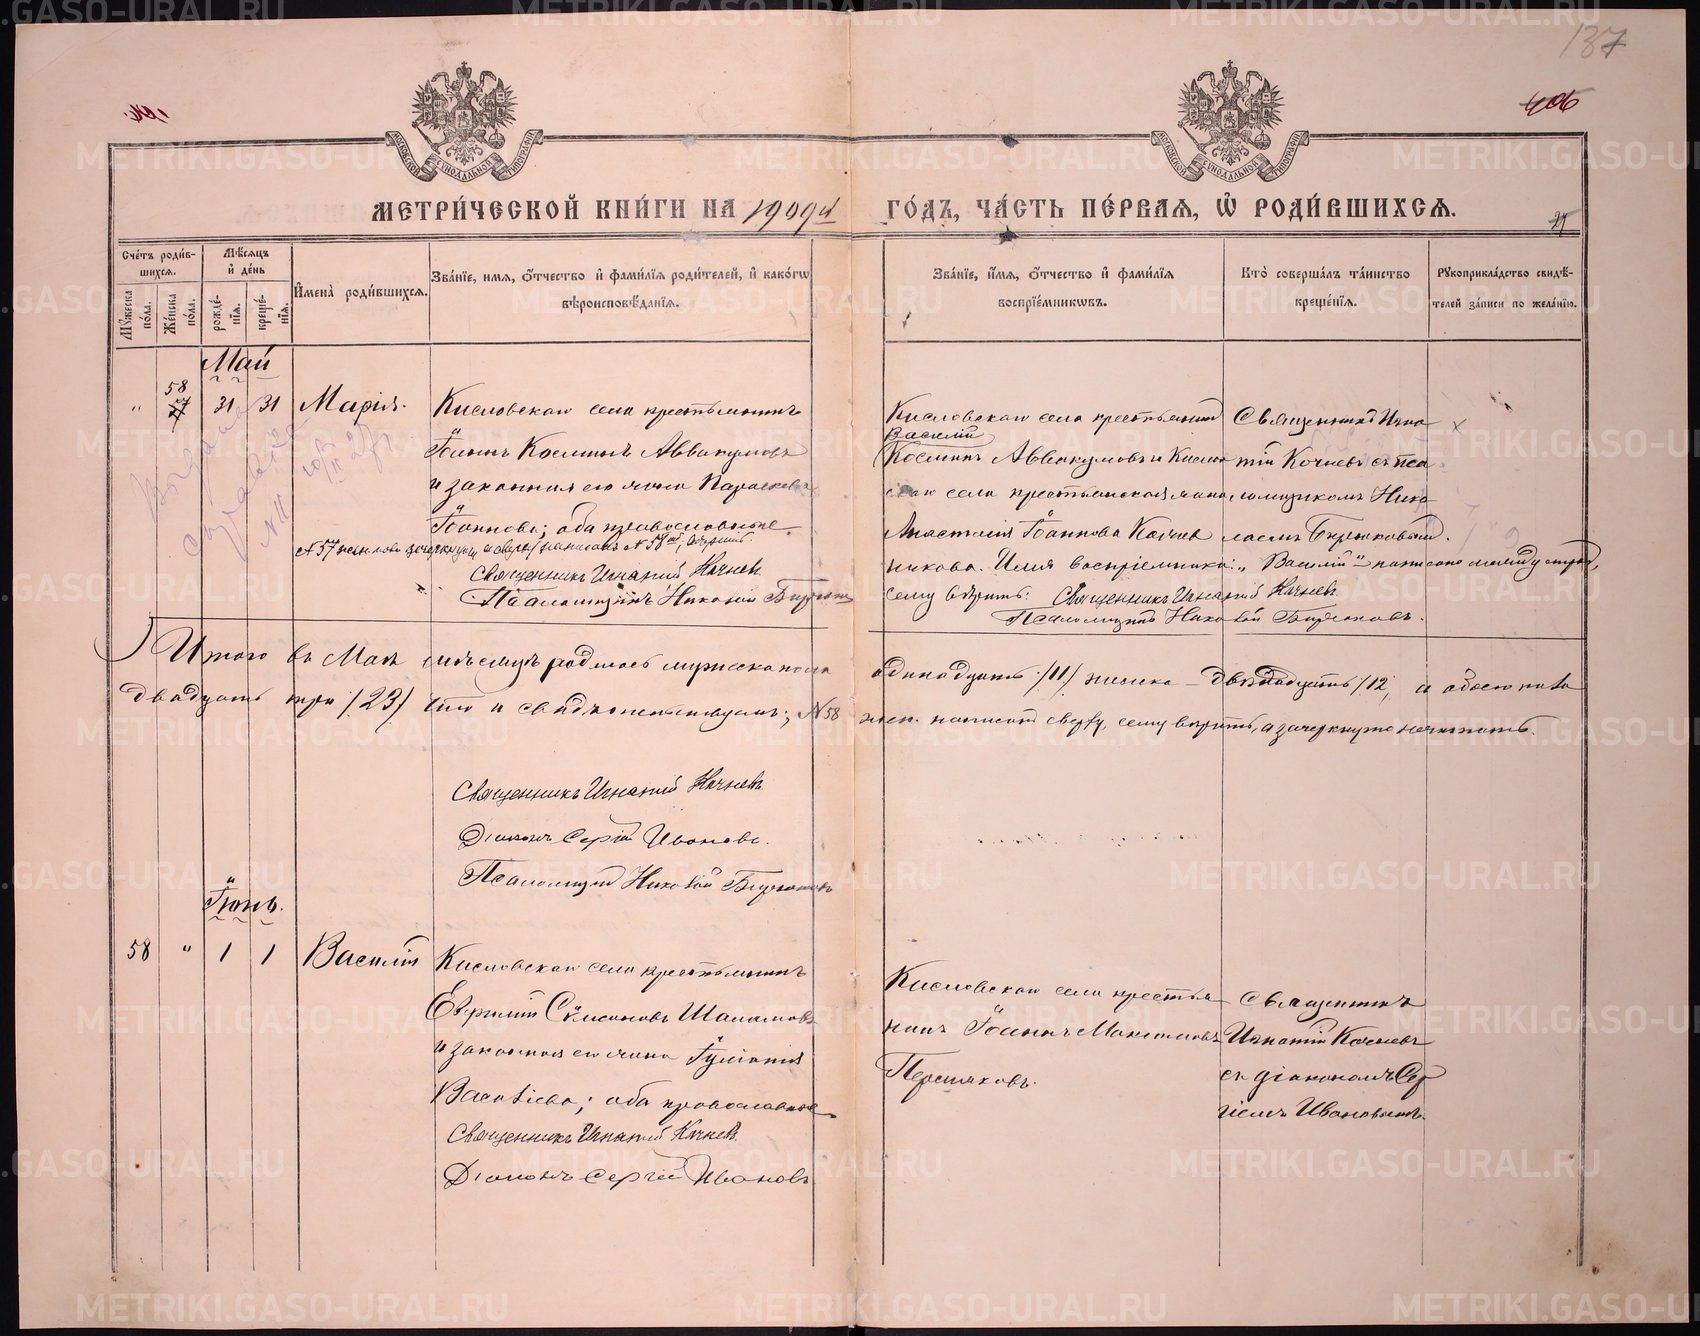 137
406
МЕТРИ́ЧЕСКОЙ КНИ́ГИ НА 1909й ГО́ДЪ, ЧА́СТЬ ПЕ́РВАЯ, Ѡ҆ РОДИ́ВШИХСЯ.
Сче́тъ роди́вшихся.
Мꙋ́жеска по́ла.
Же́нска по́ла.
Мѣ́сяцъ и҆ де́нь
рожде́нїя.
креще́нїя.
И҆мена̀ роди́вшихся.
Зва́нїе, имя, ѻ҆́тчество и҆ фами́лїя роди́телей, и҆ како́гѡ
вѣроисповѣ́данїя.
Зва́нїе, и҆́мя, ѻ҆́тчество и҆ фами́лїя
воспрїе́мниковъ.
Кто̀ соверша́лъ та́инство
креще́нїя.
Рꙋкоприкла́дство свидѣ́телей за́писи по жела́нїю.
Май
58
" 31 31 Марія.
Кисловскаго села крестьянинъ
Іоаннъ Косминъ Аввакумовъ
и законная его жена Параскева
Іоаннова; оба православные.
Священникъ Игнатій Кочневъ
Псаломщикъ Николай Бирюков
Кисловскаго села крестьянинъ
Василій
Косминъ Аввакумовъ и Кислов
скаго села крестьянская жена
Анастасія Іоаннова Калаче
никова. Имя воспріемника: „Василій" написано между строк,
сему вѣрить: Священникъ Игнатій Кочневъ
Псаломщикъ Николай Бирюковъ.
Священникъ Игна
тій Кочневъ съ пса
ломщикомъ Нико
лаемъ Бирюковымъ.
Итого въ Маѣ мѣсяцѣ родилось мужеска пола одинадцать /11/ женска – двѣнадцать /12/, а обоего пола
двадцать три /23/ что и свидѣтельствуемъ; № 58 жен. написанъ сверху, сему вѣрить, а зачеркнутое не читать.
Священникъ Игнатій Кочневъ
Діаконъ Сергій Ивановъ.
Псаломщикъ Николай Бирюковъ
Іюнь.
58 " 1 1 Василій
Кисловскаго села крестьянинъ
Евфимій Симеоновъ Шаламовъ
и законная его жена Іуліанія
Васильева; оба православные
Священникъ Игнатій Кочневъ.
Діаконъ Сергій Ивановъ
Кисловскаго села крестья
нинъ Іоаннъ Максимовъ
Пермяковъ.
Священникъ
Игнатій Кочневъ
съ діакономъ Сер
гіемъ Ивановымъ.
METRIKI.GASO-URAL.RU